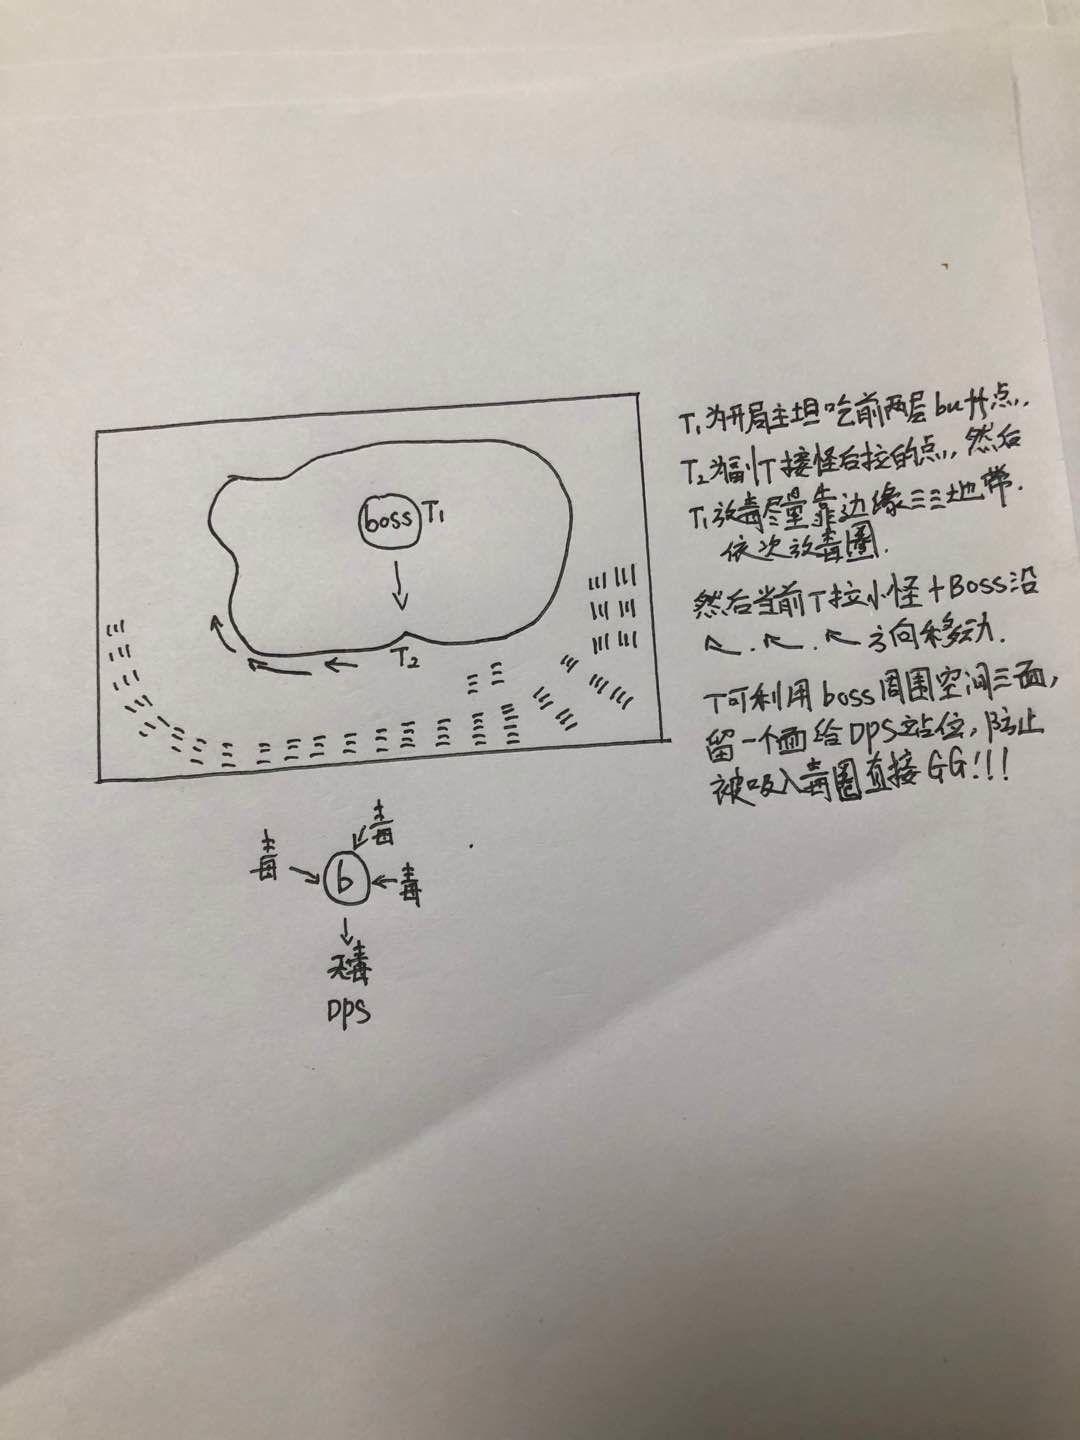 boss T₁
T₂
T₁为开局主坦吃前两层buff点,
T₂为副T接怪后拉的点,然后
T₁放毒尽量靠边缘三三地带.
依次放毒圈.
然后当前T拉小怪+Boss沿
↖.↖.↖方向移动.
T可利用boss周围空间三面,
留一个面给DPS站位,防止
被吸入毒圈直接GG!!!
毒
毒 b 毒
无毒
DPS